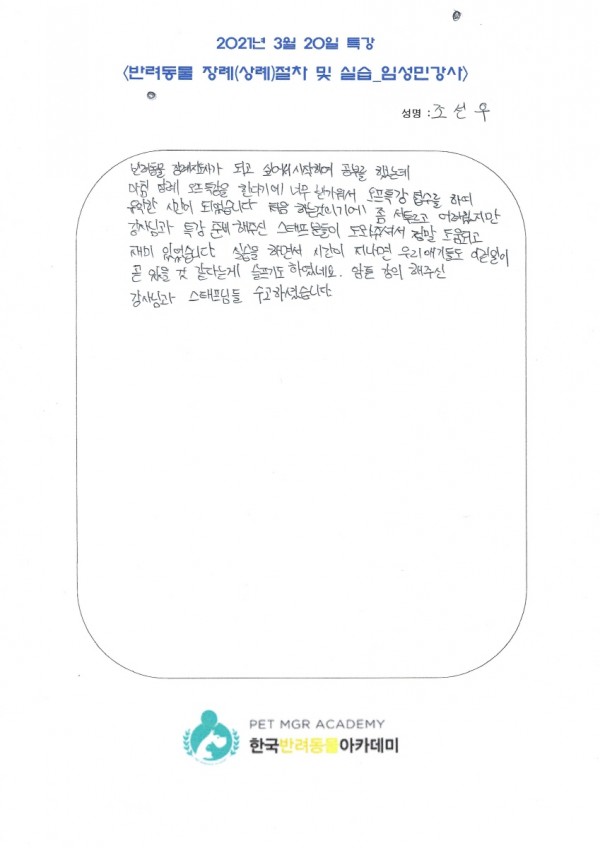 2021년 3월 20일 특강
<반려동물 장례(상례)절차 및 실습_임성민강사>
성명 : 조선우
반려동물 장례지도사가 되고 싶어서 시작하여 공부를 했는데
마침 장례 오프특강을 한다기에 너무 반가워서 오프특강 접수를 하여
유익한 시간이 되었습니다 처음 하는것이기에 좀 서툴르고 어려웠지만
강사님과 특강 준비해주신 스태프분들이 도와주셔서 정말 도움되고
재미 있었습니다 실습을 하면서 시간이 지나면 우리애기들도 이런일이
곧 있을 것 같다는게 슬프기도 하였네요. 암튼 강의 해주신
강사님과 스태프님들 수고하셨습니다
PET MGR ACADEMY
한국반려동물아카데미